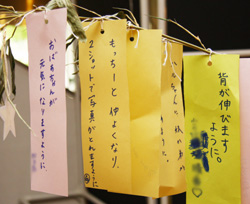 おばあちゃんが
元気になりますように。
もっちーと仲よくなり、
2ショットで写真がとれますように
背が伸びます
ように。